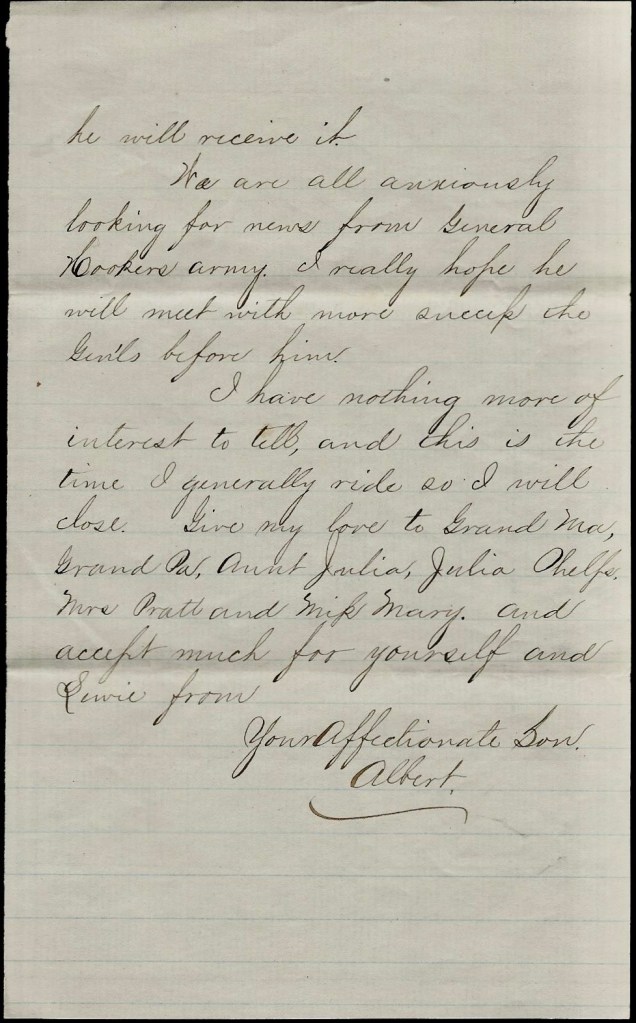 he will receive it.
We are all anxiously
looking for news from General
Hookers army. I really hope he
will meet with more success the
Gen'ls before him.
I have nothing more of
interest to tell, and this is the
time I generally ride so I will
close. Give my love to Grand Ma,
Grand Pa, Aunt Julia, Julia Phelps,
Mrs Pratt and Miss Mary. and
accept much for yourself and
Lewie from
Your Affectionate Son.
Albert.